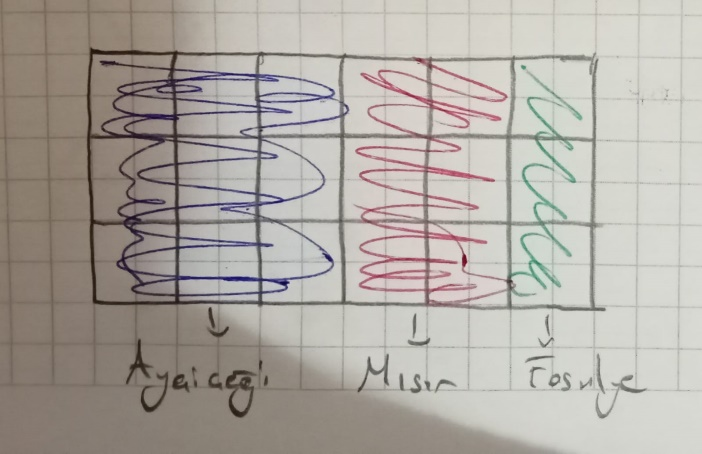 Ayçiçeği Mısır Fasulye